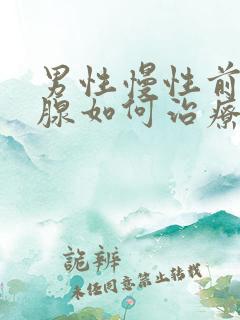 男性慢性前
腺如何治疗
詭辨
未经同意禁止转载